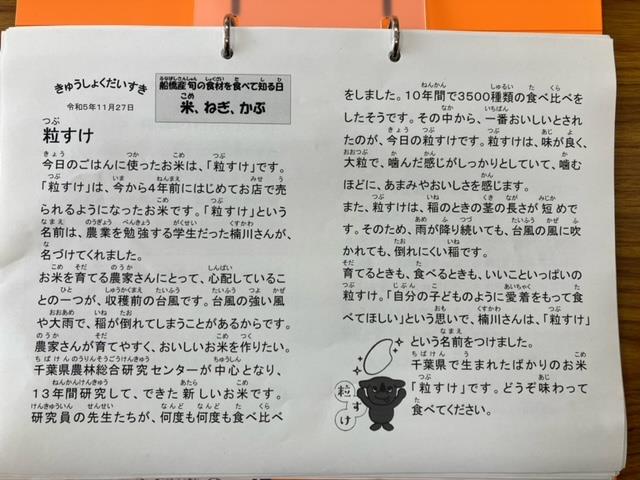 きゅうしょくだいすき
令和5年11月27日
船橋産 旬の食材を食べて知る日
米、ねぎ、かぶ
粒すけ
今日のごはんに使ったお米は、「粒すけ」です。
「粒すけ」は、今から4年前にはじめてお店で売
られるようになったお米です。「粒すけ」という
名前は、農業を勉強する学生だった楠川さんが、
名づけてくれました。
お米を育てる農家さんにとって、心配しているこ
との一つが、収穫前の台風です。台風の強い風
や大雨で、稲が倒れてしまうことがあるからです。
農家さんが育てやすく、おいしいお米を作りたい。
千葉県農林総合研究センターが中心となり、
13年間研究して、できた新しいお米です。
研究員の先生たちが、何度も何度も食べ比べ
をしました。10年間で3500種類の食べ比べを
したそうです。その中から、一番おいしいとされ
たのが、今日の粒すけです。粒すけは、味が良く、
大粒で、噛んだ感じがしっかりとしていて、噛む
ほどに、あまみやおいしさを感じます。
また、粒すけは、稲のときの茎の長さが短めで
す。そのため、雨が降り続いても、台風の風に吹
かれても、倒れにくい稲です。
育てるときも、食べるときも、いいこといっぱいの
粒すけ。「自分の子どものように愛着をもって食
べてほしい」という思いで、楠川さんは、「粒すけ」
という名前をつけました。
千葉県で生まれたばかりのお米
「粒すけ」です。どうぞ味わって
食べてください。
粒すけ